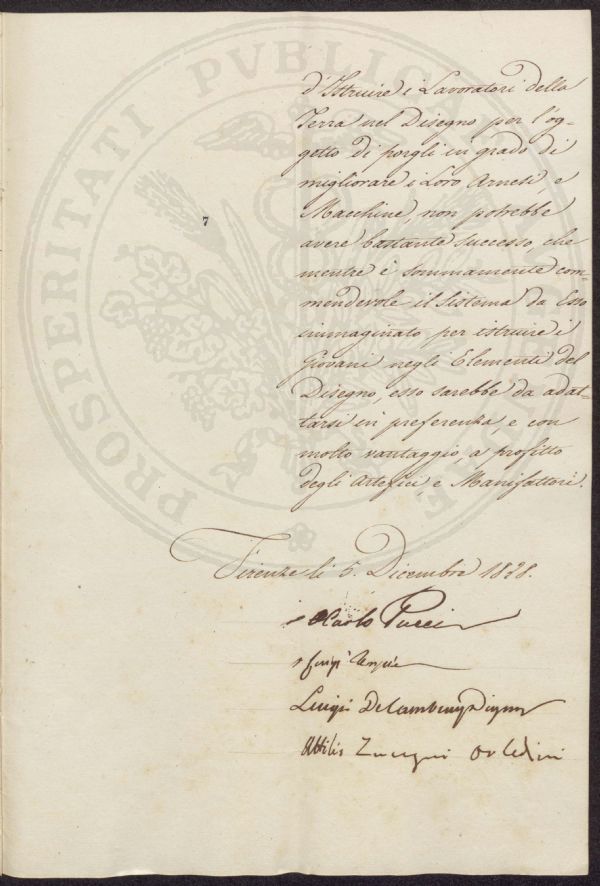 PROSPERITATI PVBLICAE AVGENDAE
7
d'Istruire i Lavoratori della
Terra nel Disegno per l'og-
getto di porgli in grado di
migliorare i Loro Arnesi, e
Macchine, non potrebbe
avere bastante successo, che
mentre è sommamente com-
mendevole il Sistema da Esso
immaginato per istruire i
Giovani negli Elementi del
Disegno, esso sarebbe da adat-
tarsi in preferenza, e con
molto vantaggio, a profitto
degli Artefici e Manifattori.
Firenze li 5. Dicembre 1828.
Carlo Pucci
Luigi
Luigi De Cambray Digny
Attilio Zuccagni Orlandini